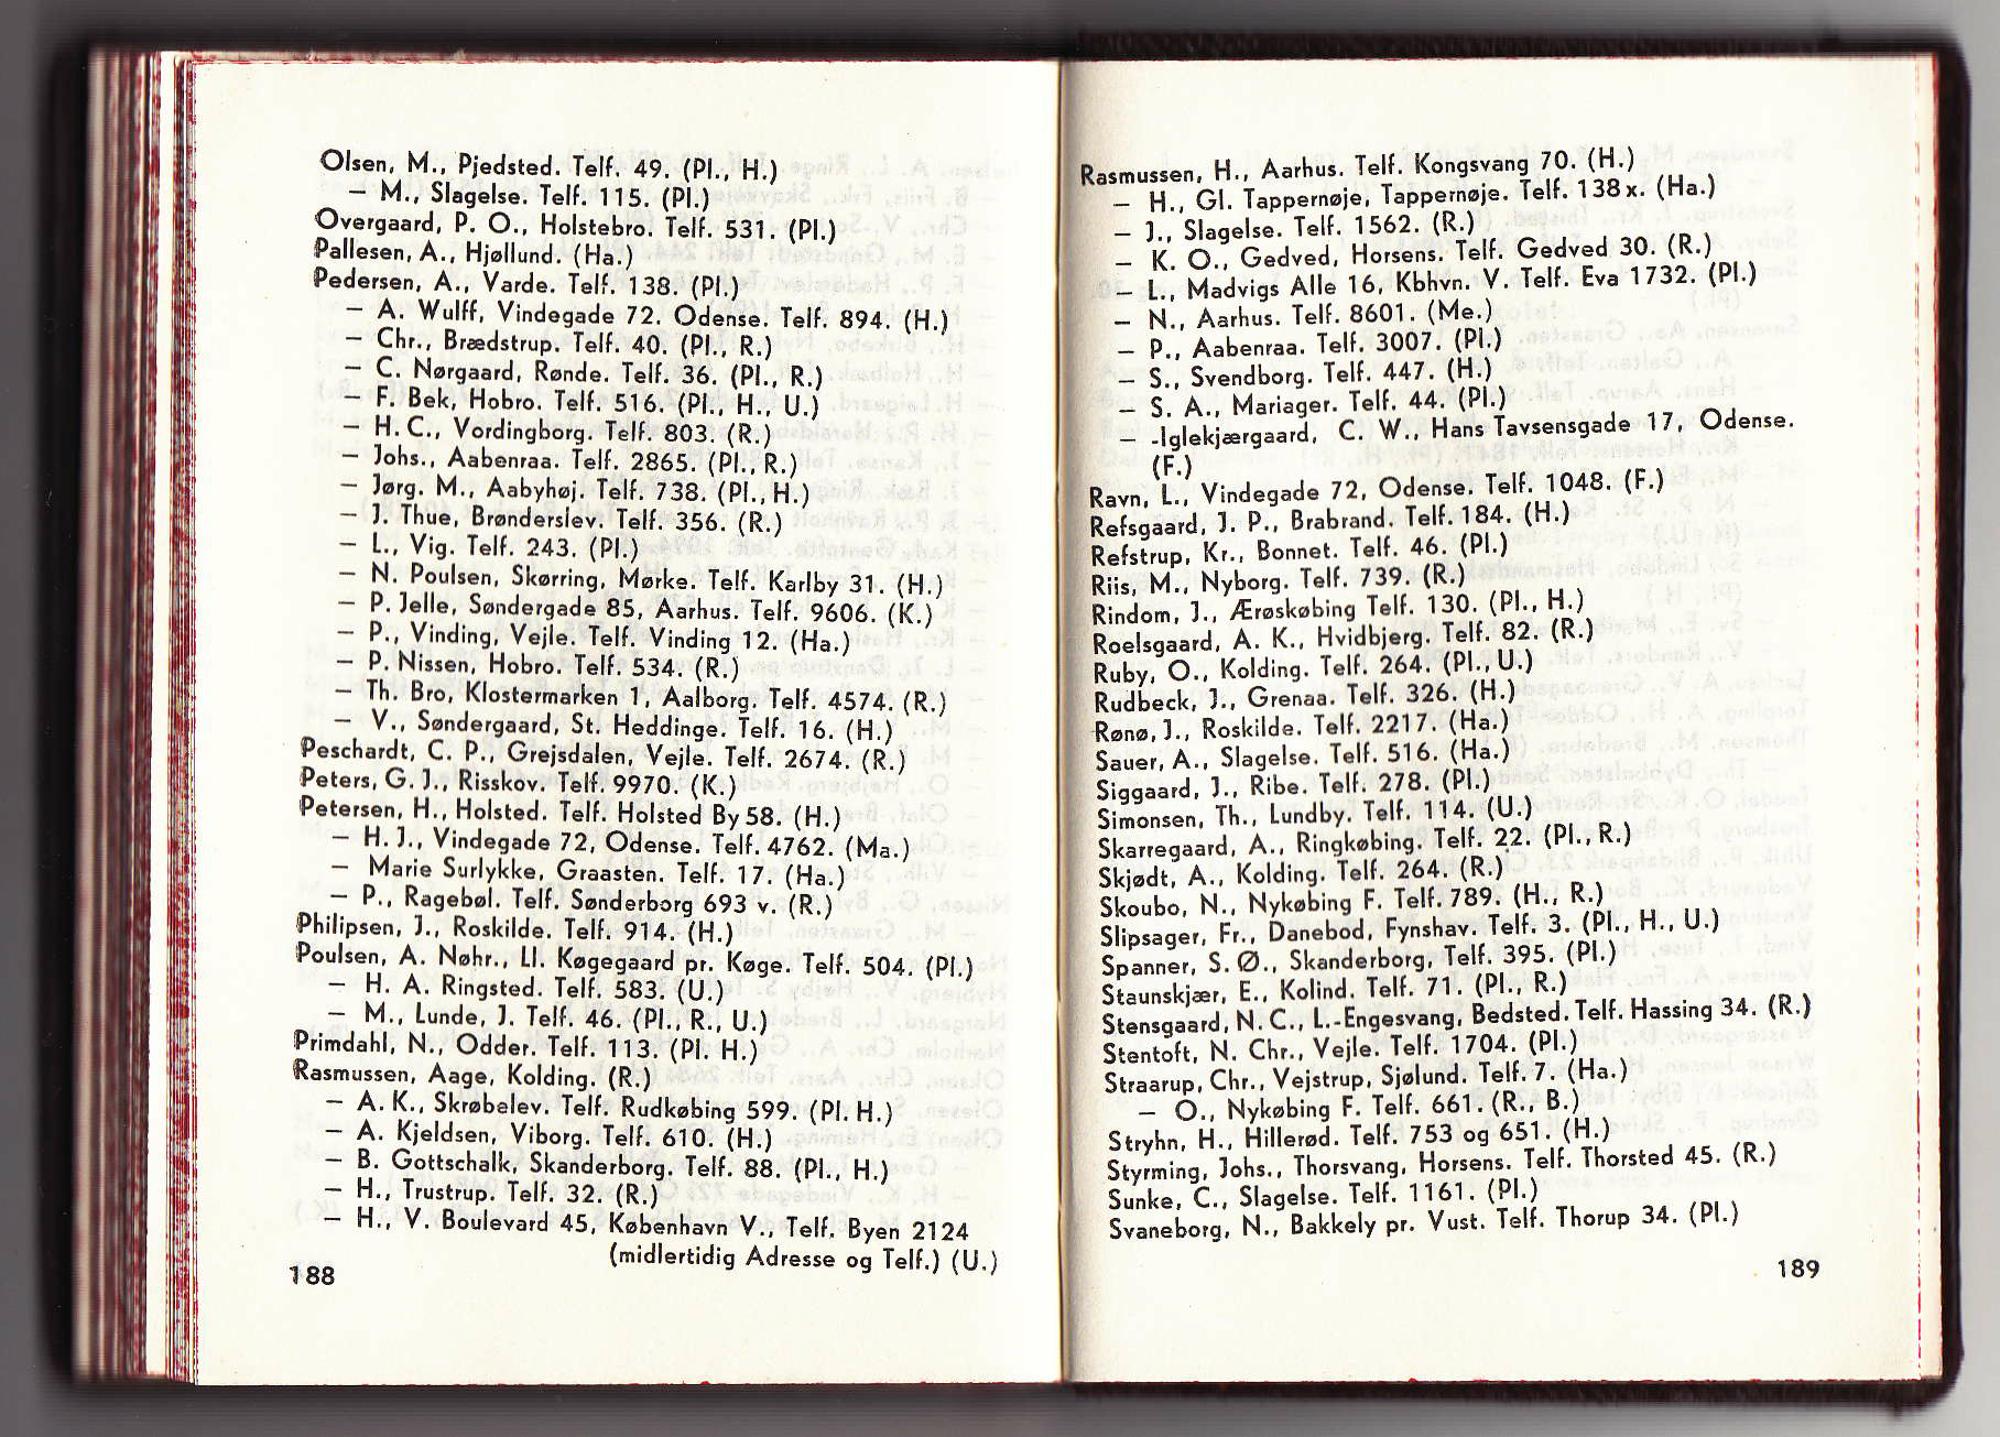 Olsen, M., Pjedsted. Telf. 49. (Pl., H.)
— M., Slagelse. Telf. 115. (Pl.)
Overgaard, P. O., Holstebro. Telf. 531. (Pl.)
Pallesen, A., Hjøllund. (Ha.)
Pedersen, A., Varde. Telf. 138. (Pl.)
— A. Wulff, Vindegade 72. Odense. Telf. 894. (H.)
— Chr., Brædstrup. Telf. 40. (Pl., R.)
— C. Nørgaard, Rønde. Telf. 36. (Pl., R.)
— F. Bek, Hobro. Telf. 516. (Pl., H., U.)
— H. C., Vordingborg. Telf. 803. (R.)
— Johs., Aabenraa. Telf. 2865. (Pl., R.)
— Jørg. M., Aabyhøj. Telf. 738. (Pl., H.)
— J. Thue, Brønderslev. Telf. 356. (R.)
— L., Vig. Telf. 243. (Pl.)
— N. Poulsen, Skørring, Mørke. Telf. Karlby 31. (H.)
— P. Jelle, Søndergade 85, Aarhus. Telf. 9606. (K.)
— P., Vinding, Vejle. Telf. Vinding 12. (Ha.)
— P. Nissen, Hobro. Telf. 534. (R.)
— Th. Bro, Klostermarken 1, Aalborg. Telf. 4574. (R.)
— V., Søndergaard, St. Heddinge. Telf. 16. (H.)
Peschardt, C. P., Grejsdalen, Vejle. Telf. 2674. (R.)
Peters, G. J., Risskov. Telf. 9970. (K.)
Petersen, H., Holsted. Telf. Holsted By 58. (H.)
— H. J., Vindegade 72, Odense. Telf. 4762. (Ma.)
— Marie Surlykke, Graasten. Telf. 17. (Ha.)
— P., Ragebøl. Telf. Sønderborg 693 v. (R.)
Philipsen, J., Roskilde. Telf. 914. (H.)
Poulsen, A. Nøhr., Ll. Køgegaard pr. Køge. Telf. 504. (Pl.)
— H. A. Ringsted. Telf. 583. (U.)
— M., Lunde, J. Telf. 46. (Pl., R., U.)
Primdahl, N., Odder. Telf. 113. (Pl. H.)
Rasmussen, Aage, Kolding. (R.)
— A. K., Skrøbelev. Telf. Rudkøbing 599. (Pl. H.)
— A. Kjeldsen, Viborg. Telf. 610. (H.)
— B. Gottschalk, Skanderborg. Telf. 88. (Pl., H.)
— H., Trustrup. Telf. 32. (R.)
— H., V. Boulevard 45, København V., Telf. Byen 2124
(midlertidig Adresse og Telf.) (U.)
188
Rasmussen, H., Aarhus. Telf. Kongsvang 70. (H.)
— H., Gl. Tappernøje, Tappernøje. Telf. 138 x. (Ha.)
— J., Slagelse. Telf. 1562. (R.)
— K. O., Gedved, Horsens. Telf. Gedved 30. (R.)
— L., Madvigs Alle 16, Kbhvn. V. Telf. Eva 1732. (Pl.)
— N., Aarhus. Telf. 8601. (Me.)
— P., Aabenraa. Telf. 3007. (Pl.)
— S., Svendborg. Telf. 447. (H.)
— S. A., Mariager. Telf. 44. (Pl.)
— -Iglekjærgaard, C. W., Hans Tavsensgade 17, Odense.
(F.)
Ravn, L., Vindegade 72, Odense. Telf. 1048. (F.)
Refsgaard, J. P., Brabrand. Telf. 184. (H.)
Refstrup, Kr., Bonnet. Telf. 46. (Pl.)
Riis, M., Nyborg. Telf. 739. (R.)
Rindom, J., Ærøskøbing Telf. 130. (Pl., H.)
Roelsgaard, A. K., Hvidbjerg. Telf. 82. (R.)
Ruby, O., Kolding. Telf. 264. (Pl., U.)
Rudbeck, J., Grenaa. Telf. 326. (H.)
Rønø, J., Roskilde. Telf. 2217. (Ha.)
Sauer, A., Slagelse. Telf. 516. (Ha.)
Siggaard, J., Ribe. Telf. 278. (Pl.)
Simonsen, Th., Lundby. Telf. 114. (U.)
Skarregaard, A., Ringkøbing. Telf. 22. (Pl., R.)
Skjødt, A., Kolding. Telf. 264. (R.)
Skoubo, N., Nykøbing F. Telf. 789. (H., R.)
Slipsager, Fr., Danebod, Fynshav. Telf. 3. (Pl., H., U.)
Spanner, S. Ø., Skanderborg, Telf. 395. (Pl.)
Staunskjær, E., Kolind. Telf. 71. (Pl., R.)
Stensgaard, N. C., L.-Engesvang, Bedsted. Telf. Hassing 34. (R.)
Stentoft, N. Chr., Vejle. Telf. 1704. (Pl.)
Straarup, Chr., Vejstrup, Sjølund. Telf. 7. (Ha.)
— O., Nykøbing F. Telf. 661. (R., B.)
Stryhn, H., Hillerød. Telf. 753 og 651. (H.)
Styrming, Johs., Thorsvang, Horsens. Telf. Thorsted 45. (R.)
Sunke, C., Slagelse. Telf. 1161. (Pl.)
Svaneborg, N., Bakkely pr. Vust. Telf. Thorup 34. (Pl.)
189